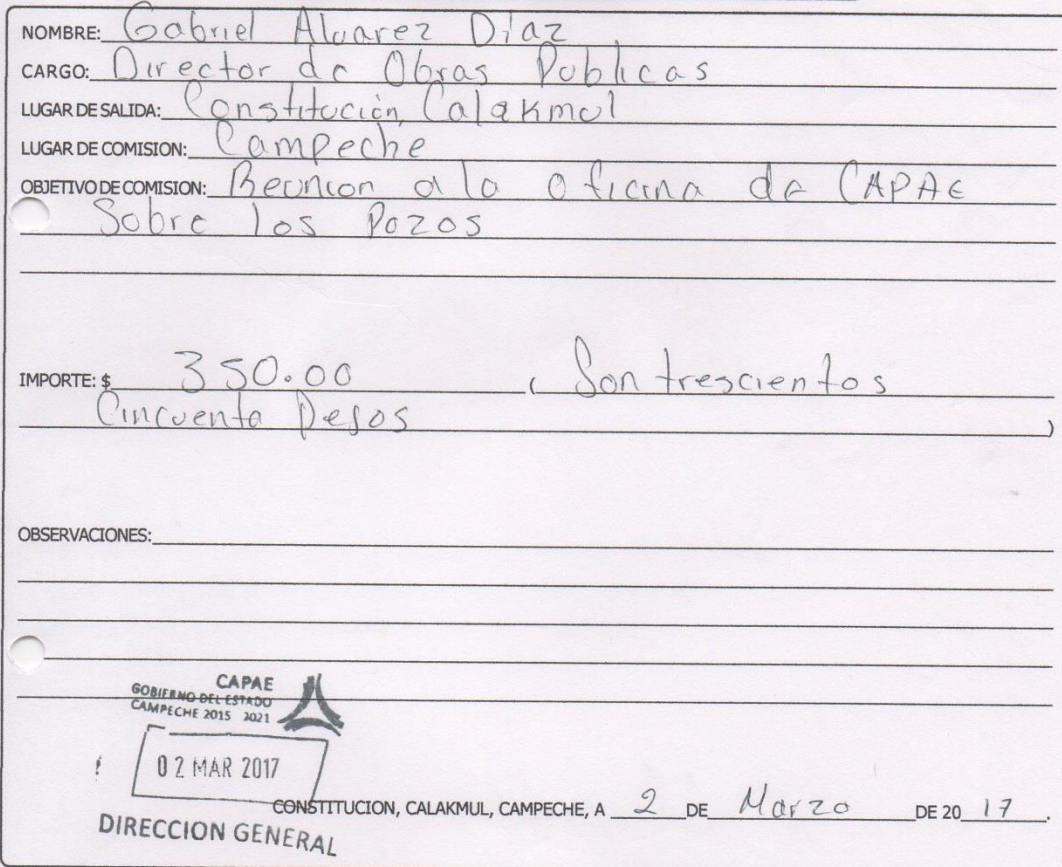 NOMBRE: Gabriel Alvarez Diaz
CARGO: Director de Obras Publicas
LUGAR DE SALIDA: Constitución, Calakmul
LUGAR DE COMISION: Campeche
OBJETIVO DE COMISION: Reunion a la oficina de CAPAE
Sobre los Pozos
IMPORTE: $ 350.00 ( Son trescientos
Cincuenta Pesos )
OBSERVACIONES:
CAPAE
GOBIERNO DEL ESTADO
CAMPECHE 2015 2021
02 MAR 2017
CONSTITUCION, CALAKMUL, CAMPECHE, A 2 DE Marzo DE 2017.
DIRECCION GENERAL